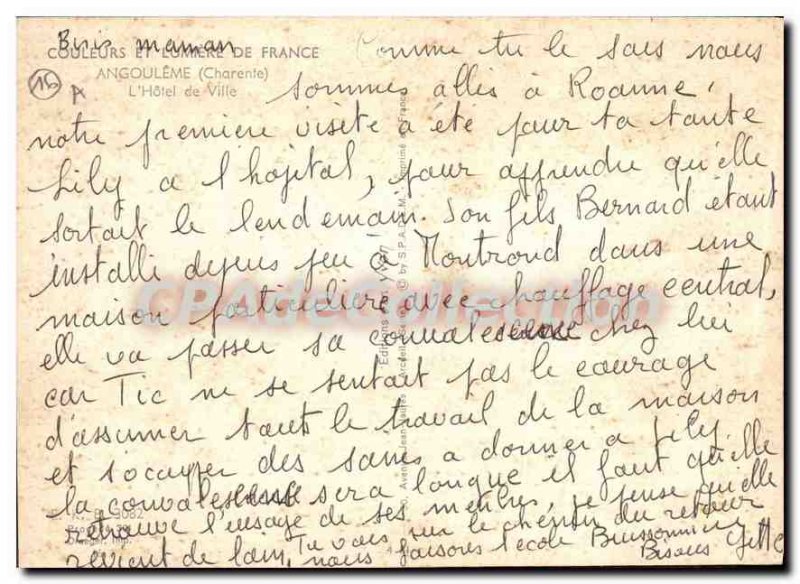 Bris maman
COULEURS ET LUMIÈRE DE FRANCE
ANGOULÊME (Charente)
L'Hôtel de Ville
16
A
Comme tu le sais nous
sommes allés à Roanne,
notre première visite a été pour ta tante
Lily a l'hopital, pour apprendre qu'elle
sortait le lendemain. Son fils Bernard étant
installé depuis peu à Montrond dans une
maison particulière avec chauffage central,
elle va passer sa convalescence chez lui
car Tic ne se sentait pas le courage
d'assumer tout le travail de la maison
et s'occuper des soins a donner a Lily.
la convalescence sera longue il faut qu'elle
retrouve l'usage de ses membres, je pense qu'elle
revient de loin. Tu vois sur le chemin du retour
nous faisons l'école Buissonnière
Bisous Yette
Editions d'art Yvon
© by S.P.A.D.E.M. Imprimé en France
Avenue Jean Jaurès - Arcueil (Seine)
3082
CPAdeCollection